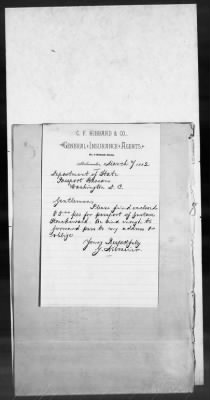 C. F. HIBBARD & CO.,
GENERAL INSURANCE AGENTS,
Milwaukee, March 7 1882
Department of State
Passport Bureau
Washington D. C.
Gentlemen;
Please find enclosed
fee for passport of
Be kind enough to
forward pass to my address &
oblige
Yours Respectfully